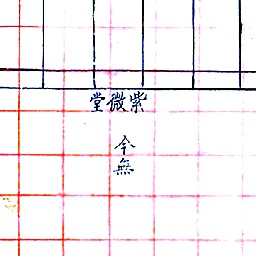 紫微堂
今無